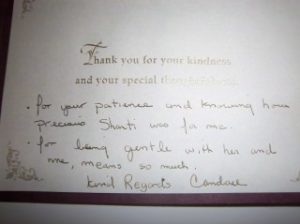 Thank you for your kindness
and your special thoughtfulness.
· for your patience and knowing how
precious Shanti was for me.
· for being gentle with her and
me, means so much.
Kind Regards Candace